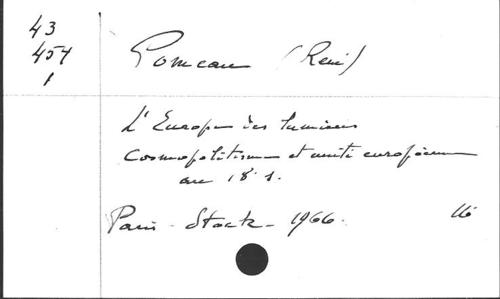 43
454
1
Pomeau (René)
L'Europe des lumières
Cosmopolitisme et unité européenne
au 18e s.
Paris - Stock - 1966.